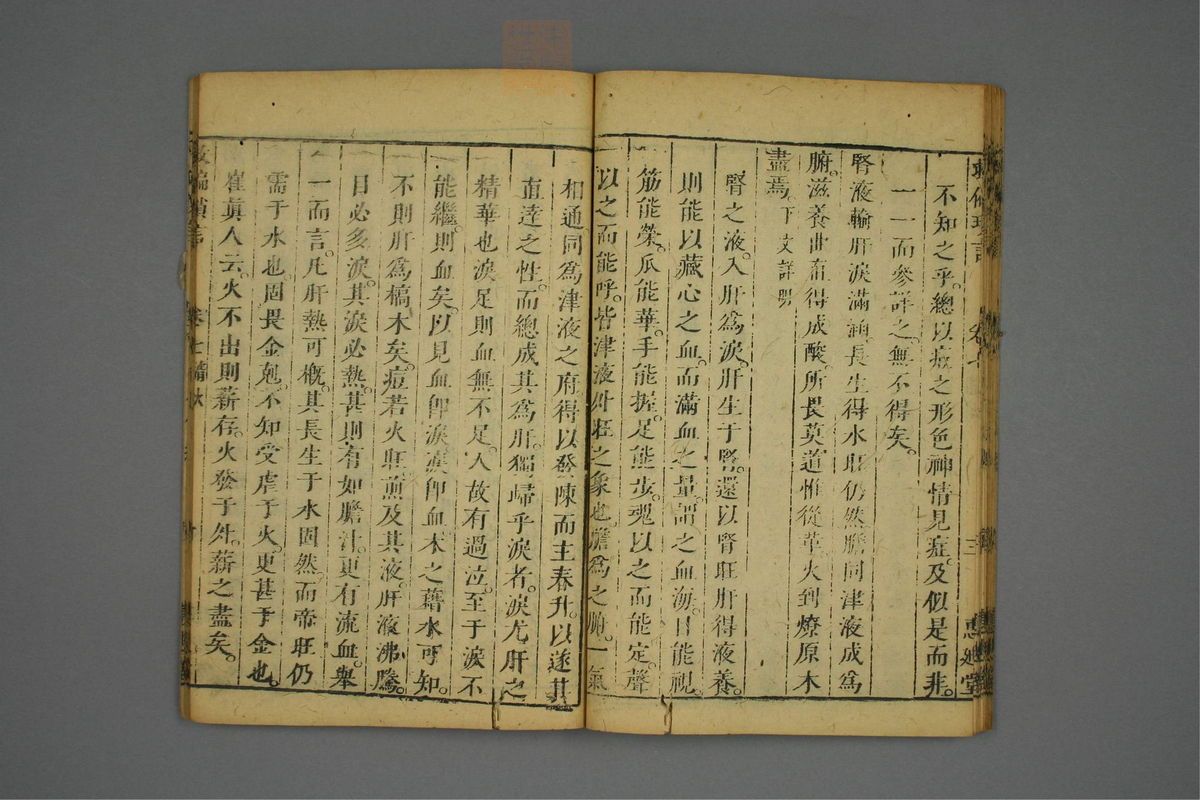 不知之乎。總以痘之形色神情見症。及似是而非。
一一而參詳之。無不得矣。
腎液輸肝淚滿涵長生得水旺仍然膽同津液成爲
腑。滋養曲直得成酸。所畏莫道惟從革。火到燎原木
盡焉。下文詳明
腎之液。入肝爲淚。肝生于腎。還以腎旺肝得液養。
則能以藏心之血。而滿血之量。謂之血海。目能視。
筋能榮。爪能華。手能握。足能步。魂以之而能定。聲
以之而能呼。皆津液升旺之象也。膽爲之腑。一氣
相通。同爲津液之府。得以發陳而主春升。以遂其
直達之性。而總成其爲肝。獨歸乎淚者。淚尤肝之
精華也。淚足則血無不足。人故有過泣。至于淚不
能繼。則血矣。以見血卽淚。淚卽血。木之藉水可知。
不則肝爲槁木矣。痘若火旺。煎及其液。肝液沸騰。
目必多淚。其淚必熱。甚則有如膽汁。更有流血。舉
一而言。凡肝熱可概。其長生于水固然。而帝旺仍
需于水也。固畏金剋。不知受虐于火。更甚于金也。
崔眞人云。火不出則薪存。火發于外。薪之盡矣。